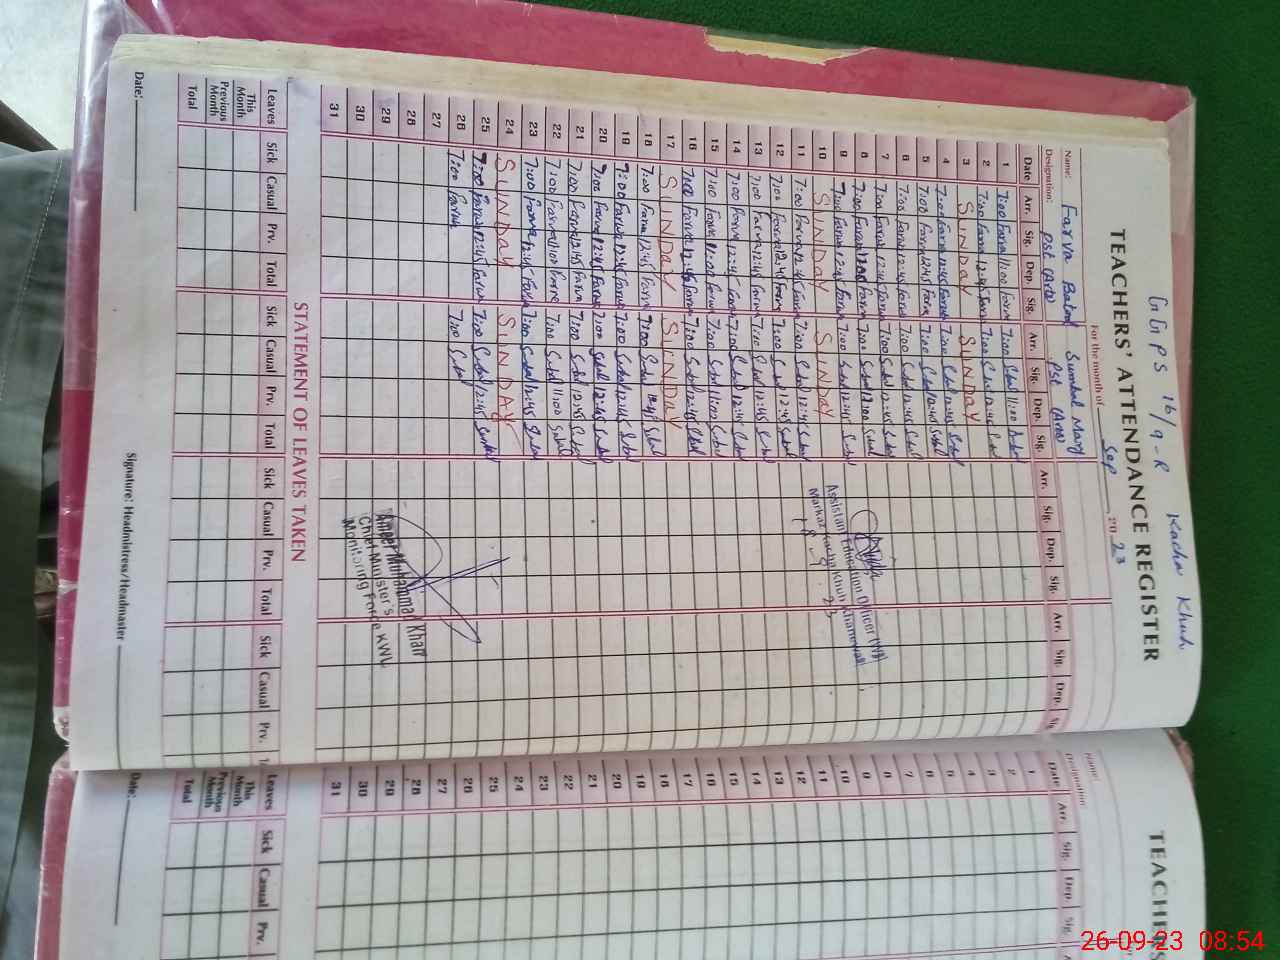 GGPS 16/9-R Kacha Khuh
TEACHERS' ATTENDANCE REGISTER
For the month of Sep 2023
Name: Farva Batool Sumbal Mary
Designation: Pst (Arts) Pst (Arts)
Date Arr. Sig. Dep. Sig. Arr. Sig. Dep. Sig. Arr. Sig. Dep. Sig. Arr. Sig. Dep. Sig
1 7:00 Farva 11:00 Farva 7:00 11:00
2 7:00 Farva 12:45 Farva 7:00 12:45
3 SUNDAY SUNDAY
4 7:00 Farva 12:45 Farva 7:00 12:45
5 7:00 Farva 12:45 Farva 7:00 12:45
6 7:00 Farva 12:45 Farva 7:00 12:45
7 7:00 Farva 12:45 Farva 7:00 12:45
8 7:00 Farva 12:00 Farva 7:00 12:00
9 7:00 Farva 12:45 Farva 7:00 12:45
10 SUNDAY SUNDAY
11 7:00 Farva 12:45 Farva 7:00 12:45
12 7:00 Farva 12:45 Farva 7:00 12:45
13 7:00 Farva 12:45 Farva 7:00 12:45
14 7:00 Farva 12:45 Farva 7:00 12:45
15 7:00 Farva 11:00 Farva 7:00 11:00
16 7:00 Farva 12:45 Farva 7:00 12:45
17 SUNDAY SUNDAY
18 7:00 Farva 12:45 Farva 7:00 12:45
19 7:00 Farva 12:45 Farva 7:00 12:45
20 7:00 Farva 12:45 Farva 7:00 12:45
21 7:00 Farva 12:45 Farva 7:00 12:45
22 7:00 Farva 11:00 Farva 7:00 11:00
23 7:00 Farva 12:45 Farva 7:00 12:45
24 SUNDAY SUNDAY
25 7:00 Farva 12:45 Farva 7:00 12:45
26 7:00 Farva 7:00
27
28
29
30
31
Assistant Education Officer (W)
Markaz Kacha Khuh Khanewal
Ameer Muhammad Khan
Chief Minister's
Monitoring Force KWL
STATEMENT OF LEAVES TAKEN
Leaves Sick Casual Prv. Total Sick Casual Prv. Total Sick Casual Prv. Total Sick Casual Prv.
This Month
Previous Month
Total
Date: Signature: Headmistress/Headmaster
TEACHERS
Name:
Designation:
Date Arr. Sig. Dep. Sig.
1
2
3
4
5
6
7
8
9
10
11
12
13
14
15
16
17
18
19
20
21
22
23
24
25
26
27
28
29
30
31
Leaves Sick Casual Prv.
This Month
Previous Month
Total
Date:
26-09-23 08:54